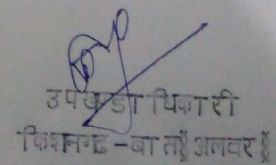 उपखण्डाधिकारी
किशनगढ-बास (अलवर)